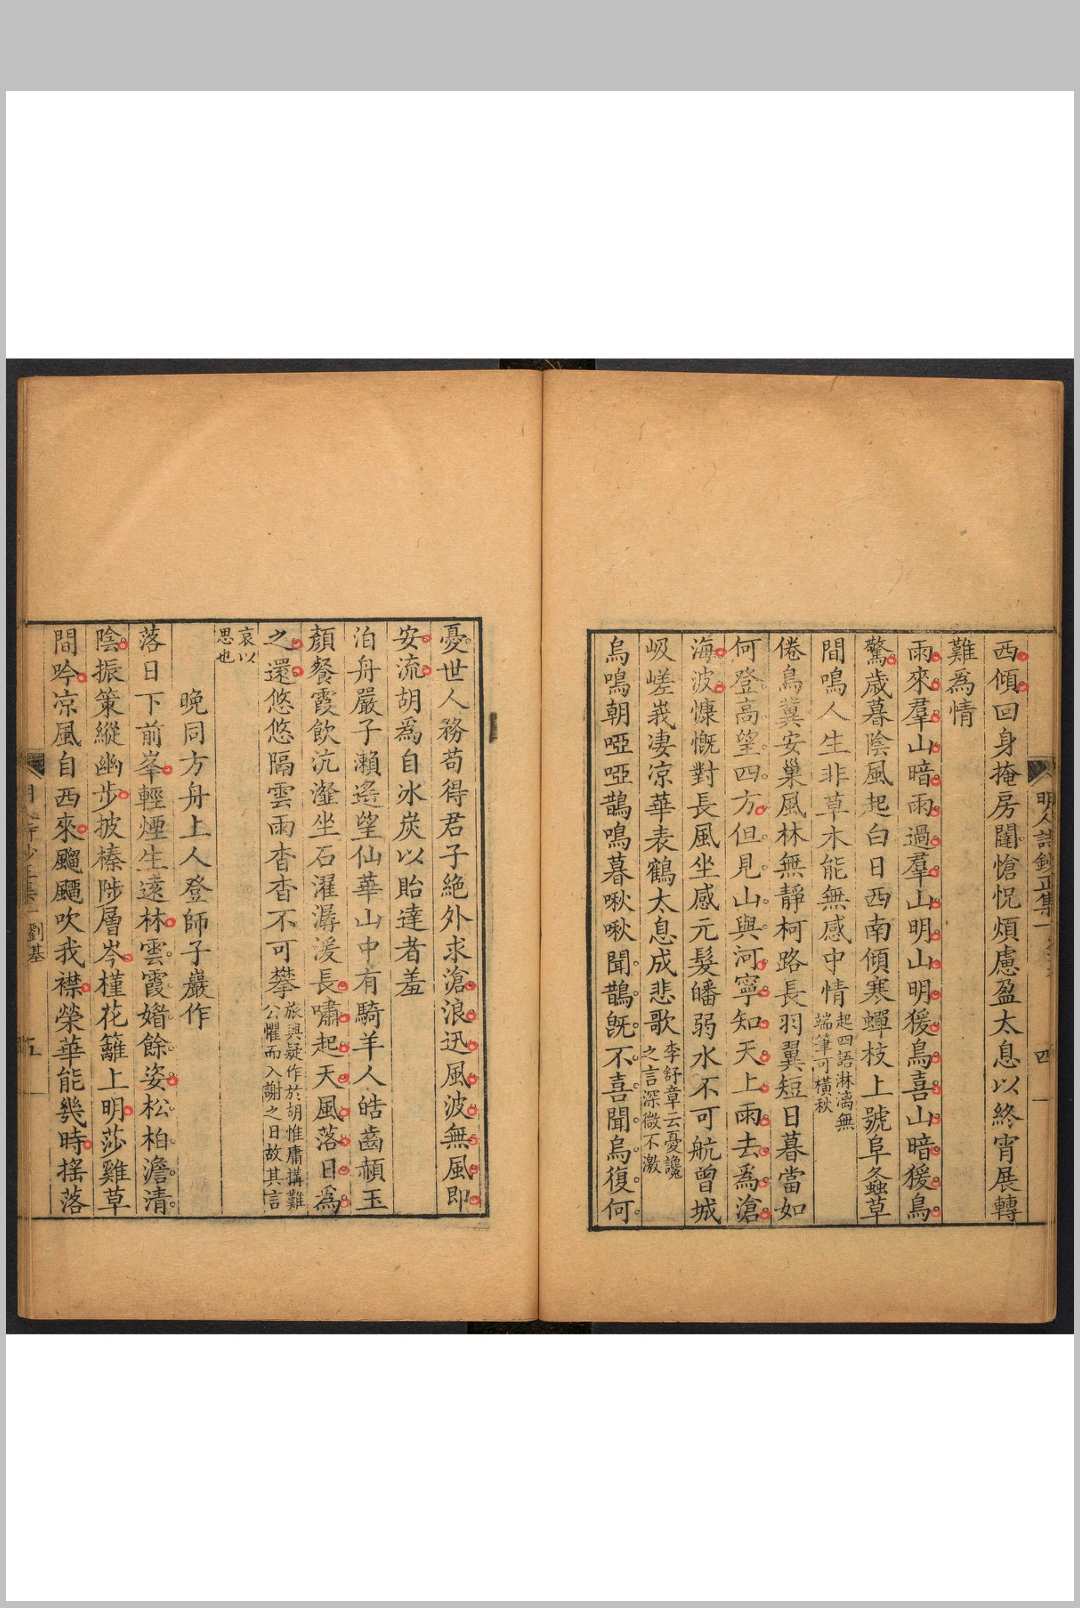 西傾回身掩房闥愴怳煩慮盈太息以終宵展轉
難為情
雨來羣山暗雨過羣山明山明猨鳥喜山暗猨鳥
驚歲暮陰風起白日西南傾寒蟬枝上號阜螽草
間鳴人生非草木能無感中情
起四語淋漓無
端筆可橫秋
倦鳥冀安巢風林無靜柯路長羽翼短日暮當如
何登高望四方但見山與河寧知天上雨去為滄
海波慷慨對長風坐感元髮皤弱水不可航曾城
岌嵯峩凄凉華表鶴太息成悲歌
李舒章云憂讒
之言深微不激
烏鳴朝啞啞鵲鳴暮啾啾聞鵲旣不喜聞烏復何
憂世人務苟得君子絶外求滄浪迅風波無風即
安流胡爲自冰炭以貽達者羞
泊舟嚴子瀨遙望仙華山中有騎羊人皓齒頳玉
顏餐霞飲沆瀣坐石濯潺湲長嘯起天風落日爲
之還悠悠隔雲雨杳杳不可攀
旅興疑作於胡惟庸搆難
公懼而入謝之日故其言
哀以
思也
晚同方舟上人登師子巖作
落日下前峯輕煙生遠林雲霞媎餘姿松柏澹清
陰振策縱幽步披榛陟層岑槿花籬上明莎雞草
間吟凉風自西來颸颸吹我襟榮華能幾時搖落
明人詩鈔正集
四
劉基
五